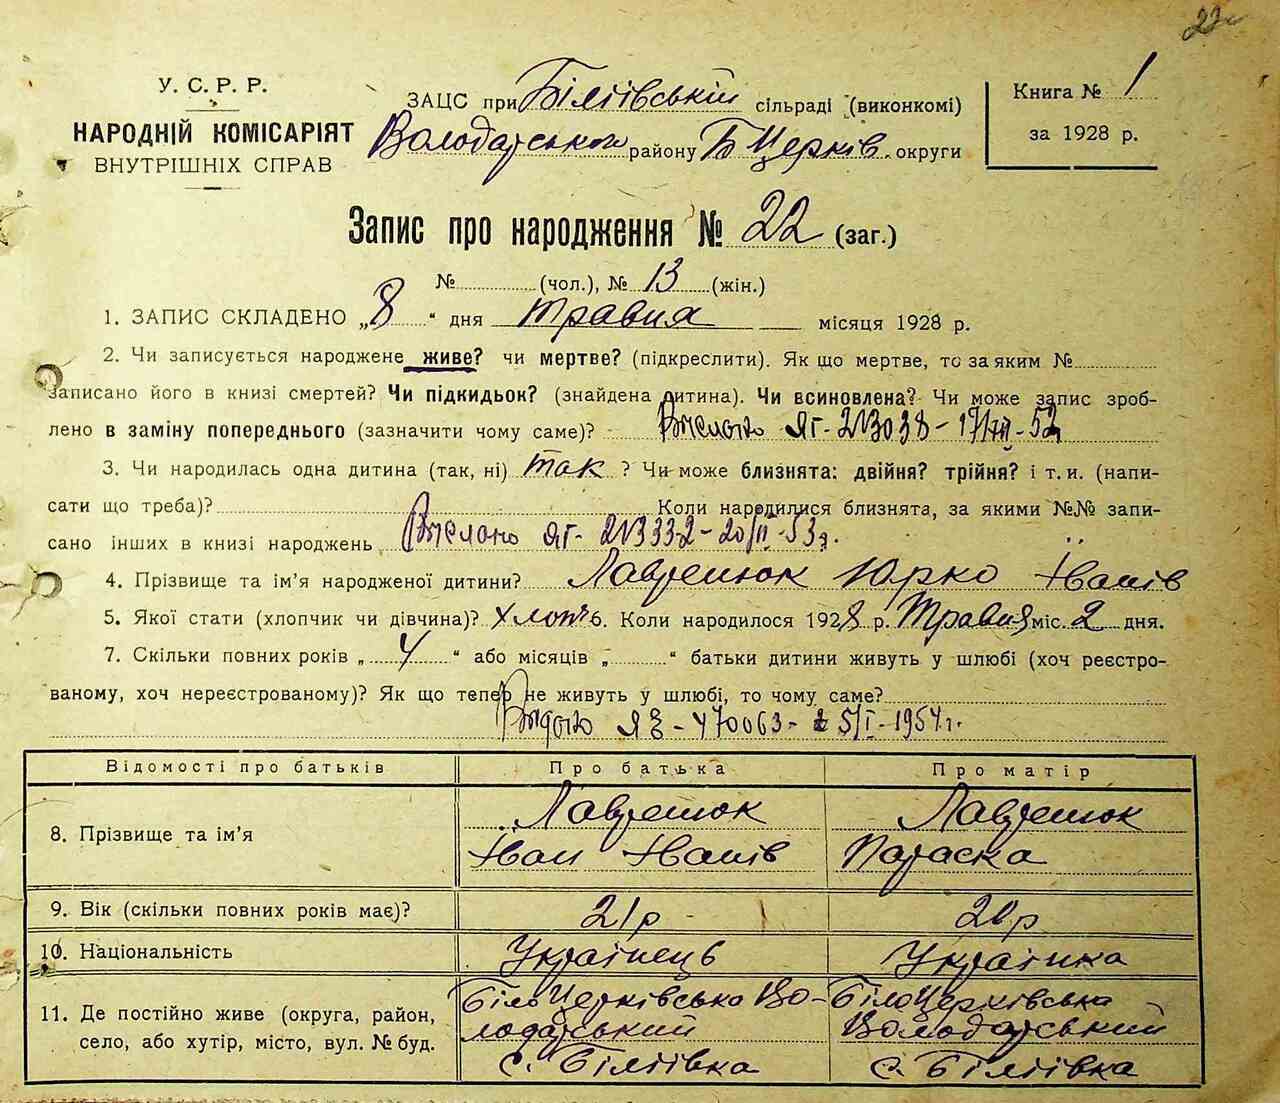 22
У. С. Р. Р.
НАРОДНІЙ КОМІСАРІЯТ
ВНУТРІШНІХ СПРАВ
ЗАЦС при Біліївській сільраді (виконкомі)
Володарського району Б Церків. округи
Книга № 1
за 1928 р.
Запис про народження № 22 (заг.)
№ (чол.), № 13 (жін.)
1. ЗАПИС СКЛАДЕНО „8" дня травня місяця 1928 р.
2. Чи записується народжене живе? чи мертве? (підкреслити). Як що мертве, то за яким №
записано його в книзі смертей? Чи підкидьок? (знайдена дитина). Чи всиновлена? Чи може запис зроб-
лено в заміну попереднього (зазначити чому саме)? Выслано ЯГ-213038-17/VII-52
3. Чи народилась одна дитина (так, ні) так ? Чи може близнята: двійня? трійня? і т. и. (напи-
сати що треба)? Коли народилися близнята, за якими №№ запи-
сано інших в книзі народжень Выслано ЯГ-213332-20/II-53г.
4. Прізвище та ім'я народженої дитини? Лавренюк Юрко Іванів
5. Якої стати (хлопчик чи дівчина)? хлопч. Коли народилося 1928 р. Травня міс. 2 дня.
7. Скільки повних років „4" або місяців „ " батьки дитини живуть у шлюбі (хоч реєстро-
ваному, хоч нереєстрованому)? Як що тепер не живуть у шлюбі, то чому саме?
Выдано ЯЗ-470063- 5/I-1954г.
Відомості про батьків Про батька Про матір
8. Прізвище та ім'я Лавренюк Іван Іванів Лавренюк Параска
9. Вік (скільки повних років має)? 21р 20р
10. Національність Українець Українка
11. Де постійно живе (округа, район, село, або хутір, місто, вул. № буд. БілоЦерківська Володарський с. Біліївка БілоЦерківська Володарський с. Біліївка